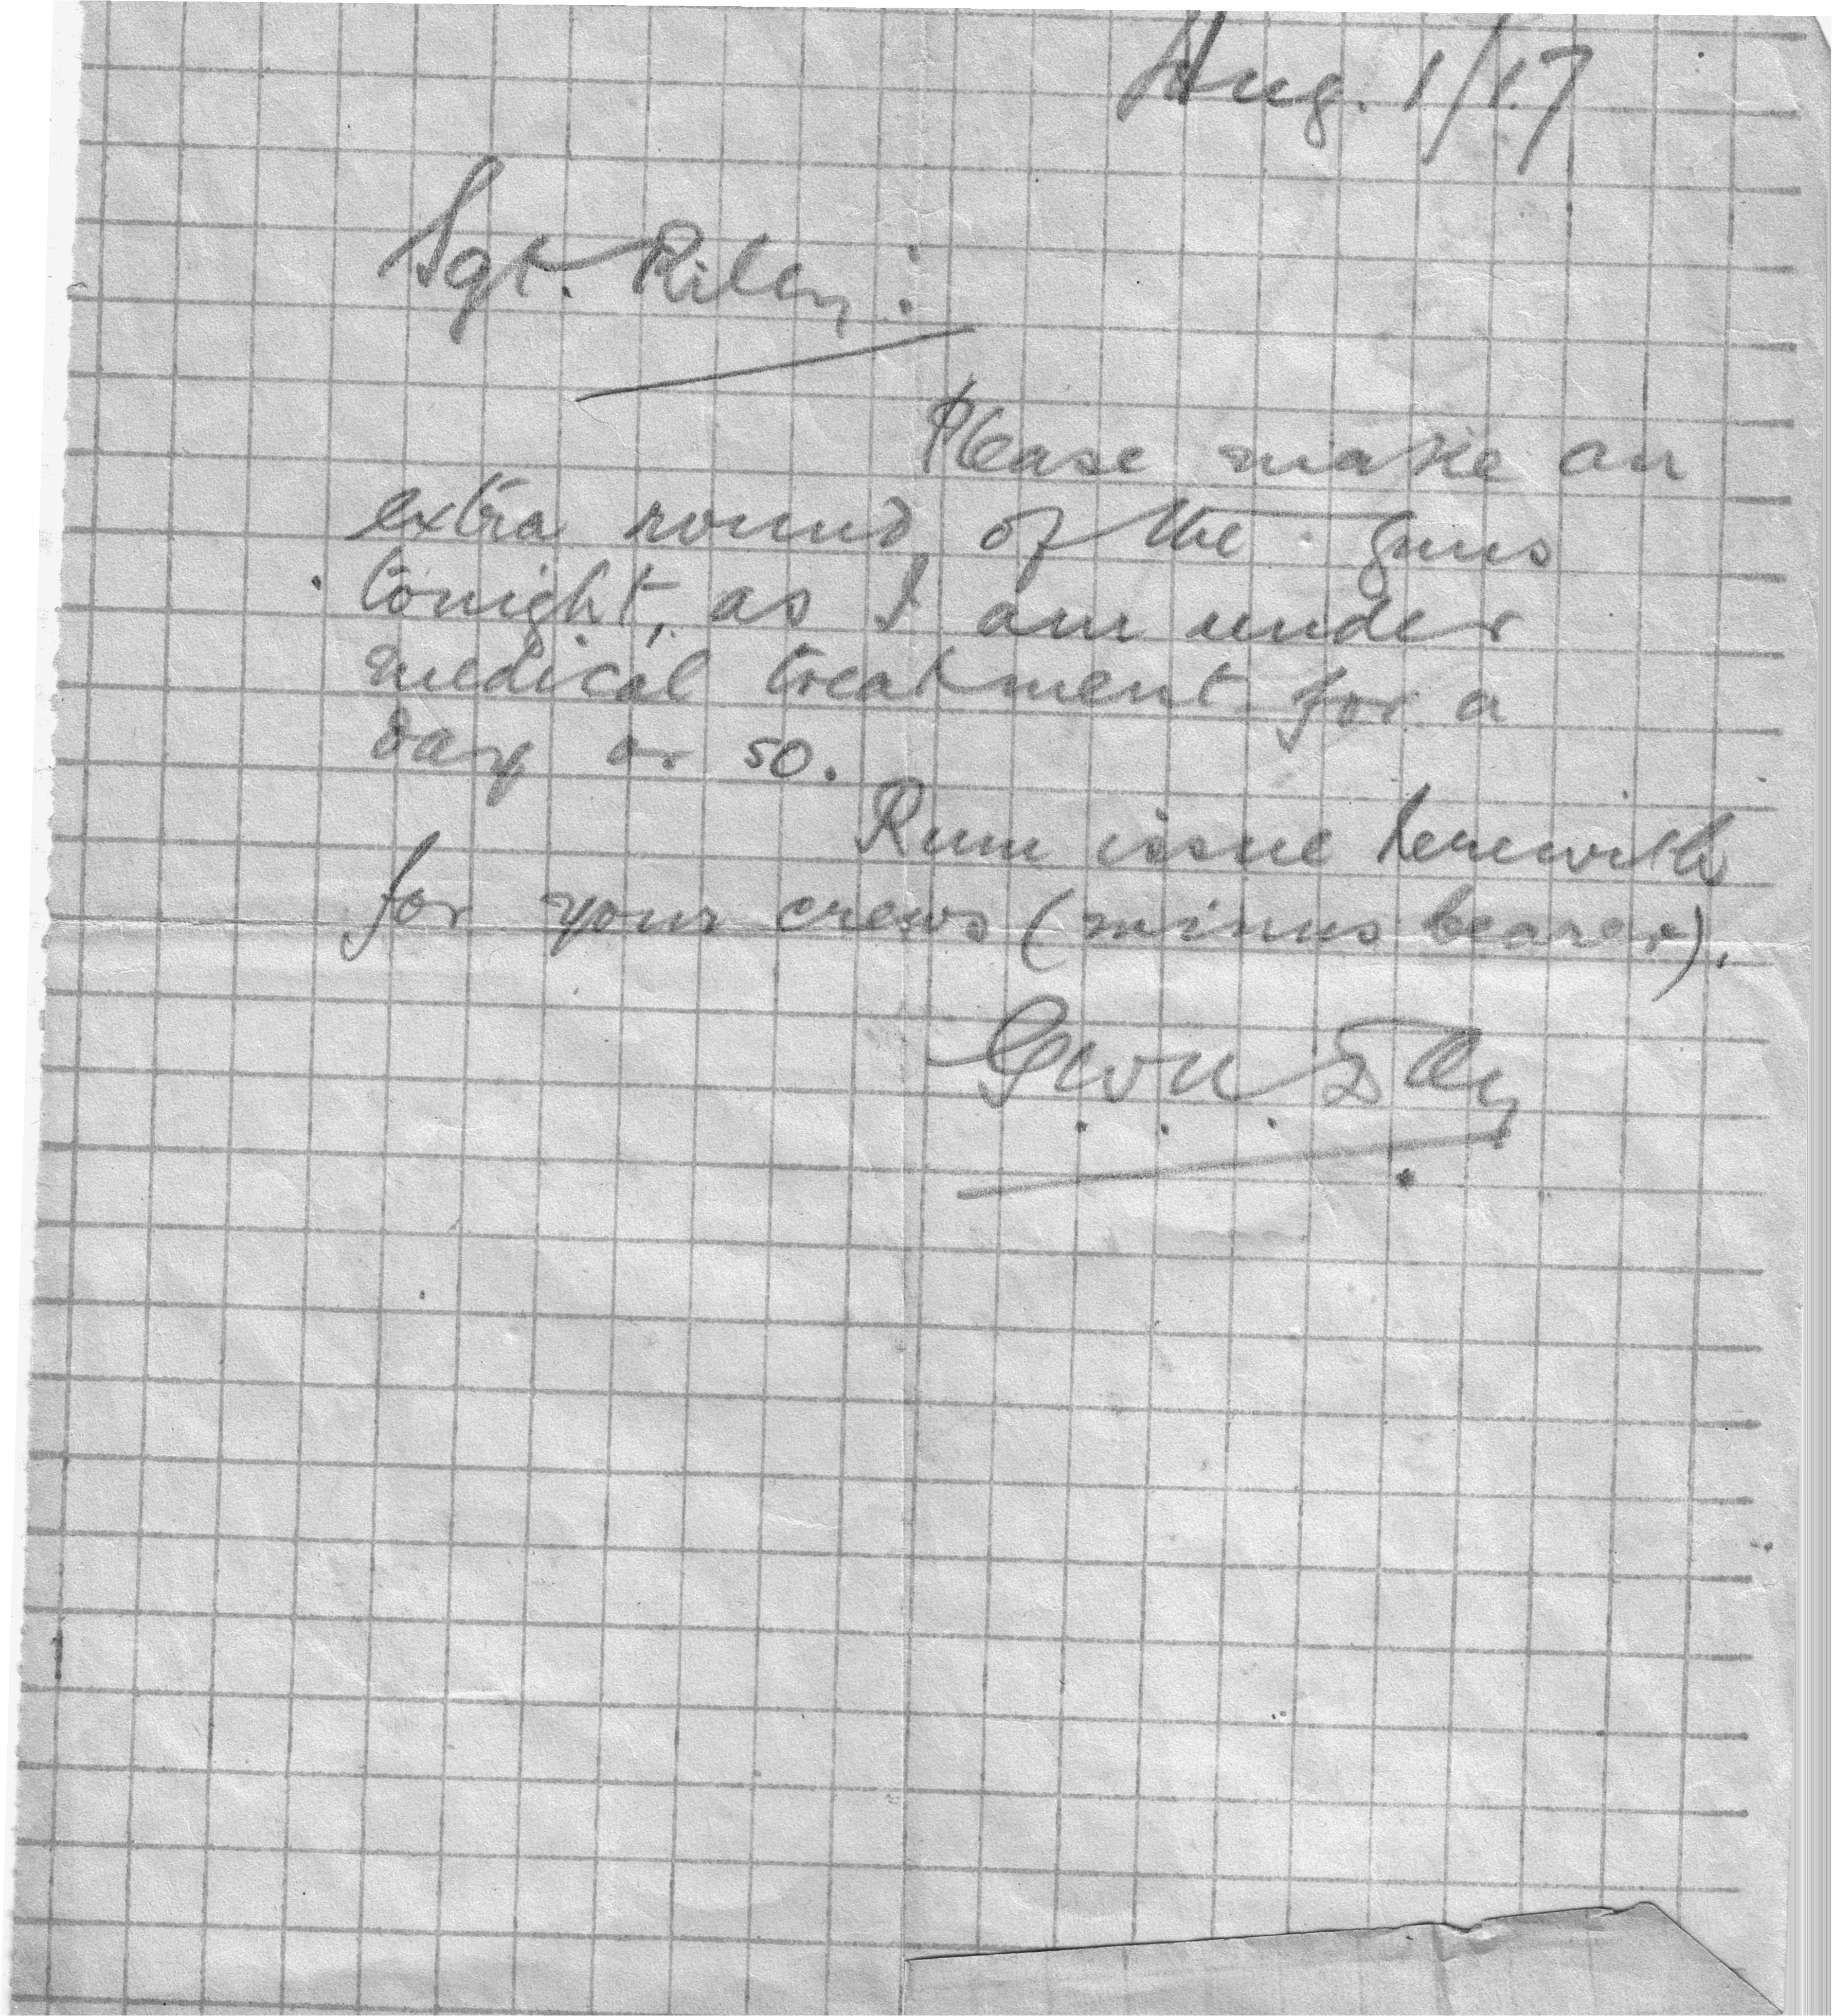 Aug. 1/17
Sgt. Riley:
Please make an
extra round of the guns
tonight, as I am under
medical treatment for a
day or so.
Rum issue herewith
for your crews (minus bearer).